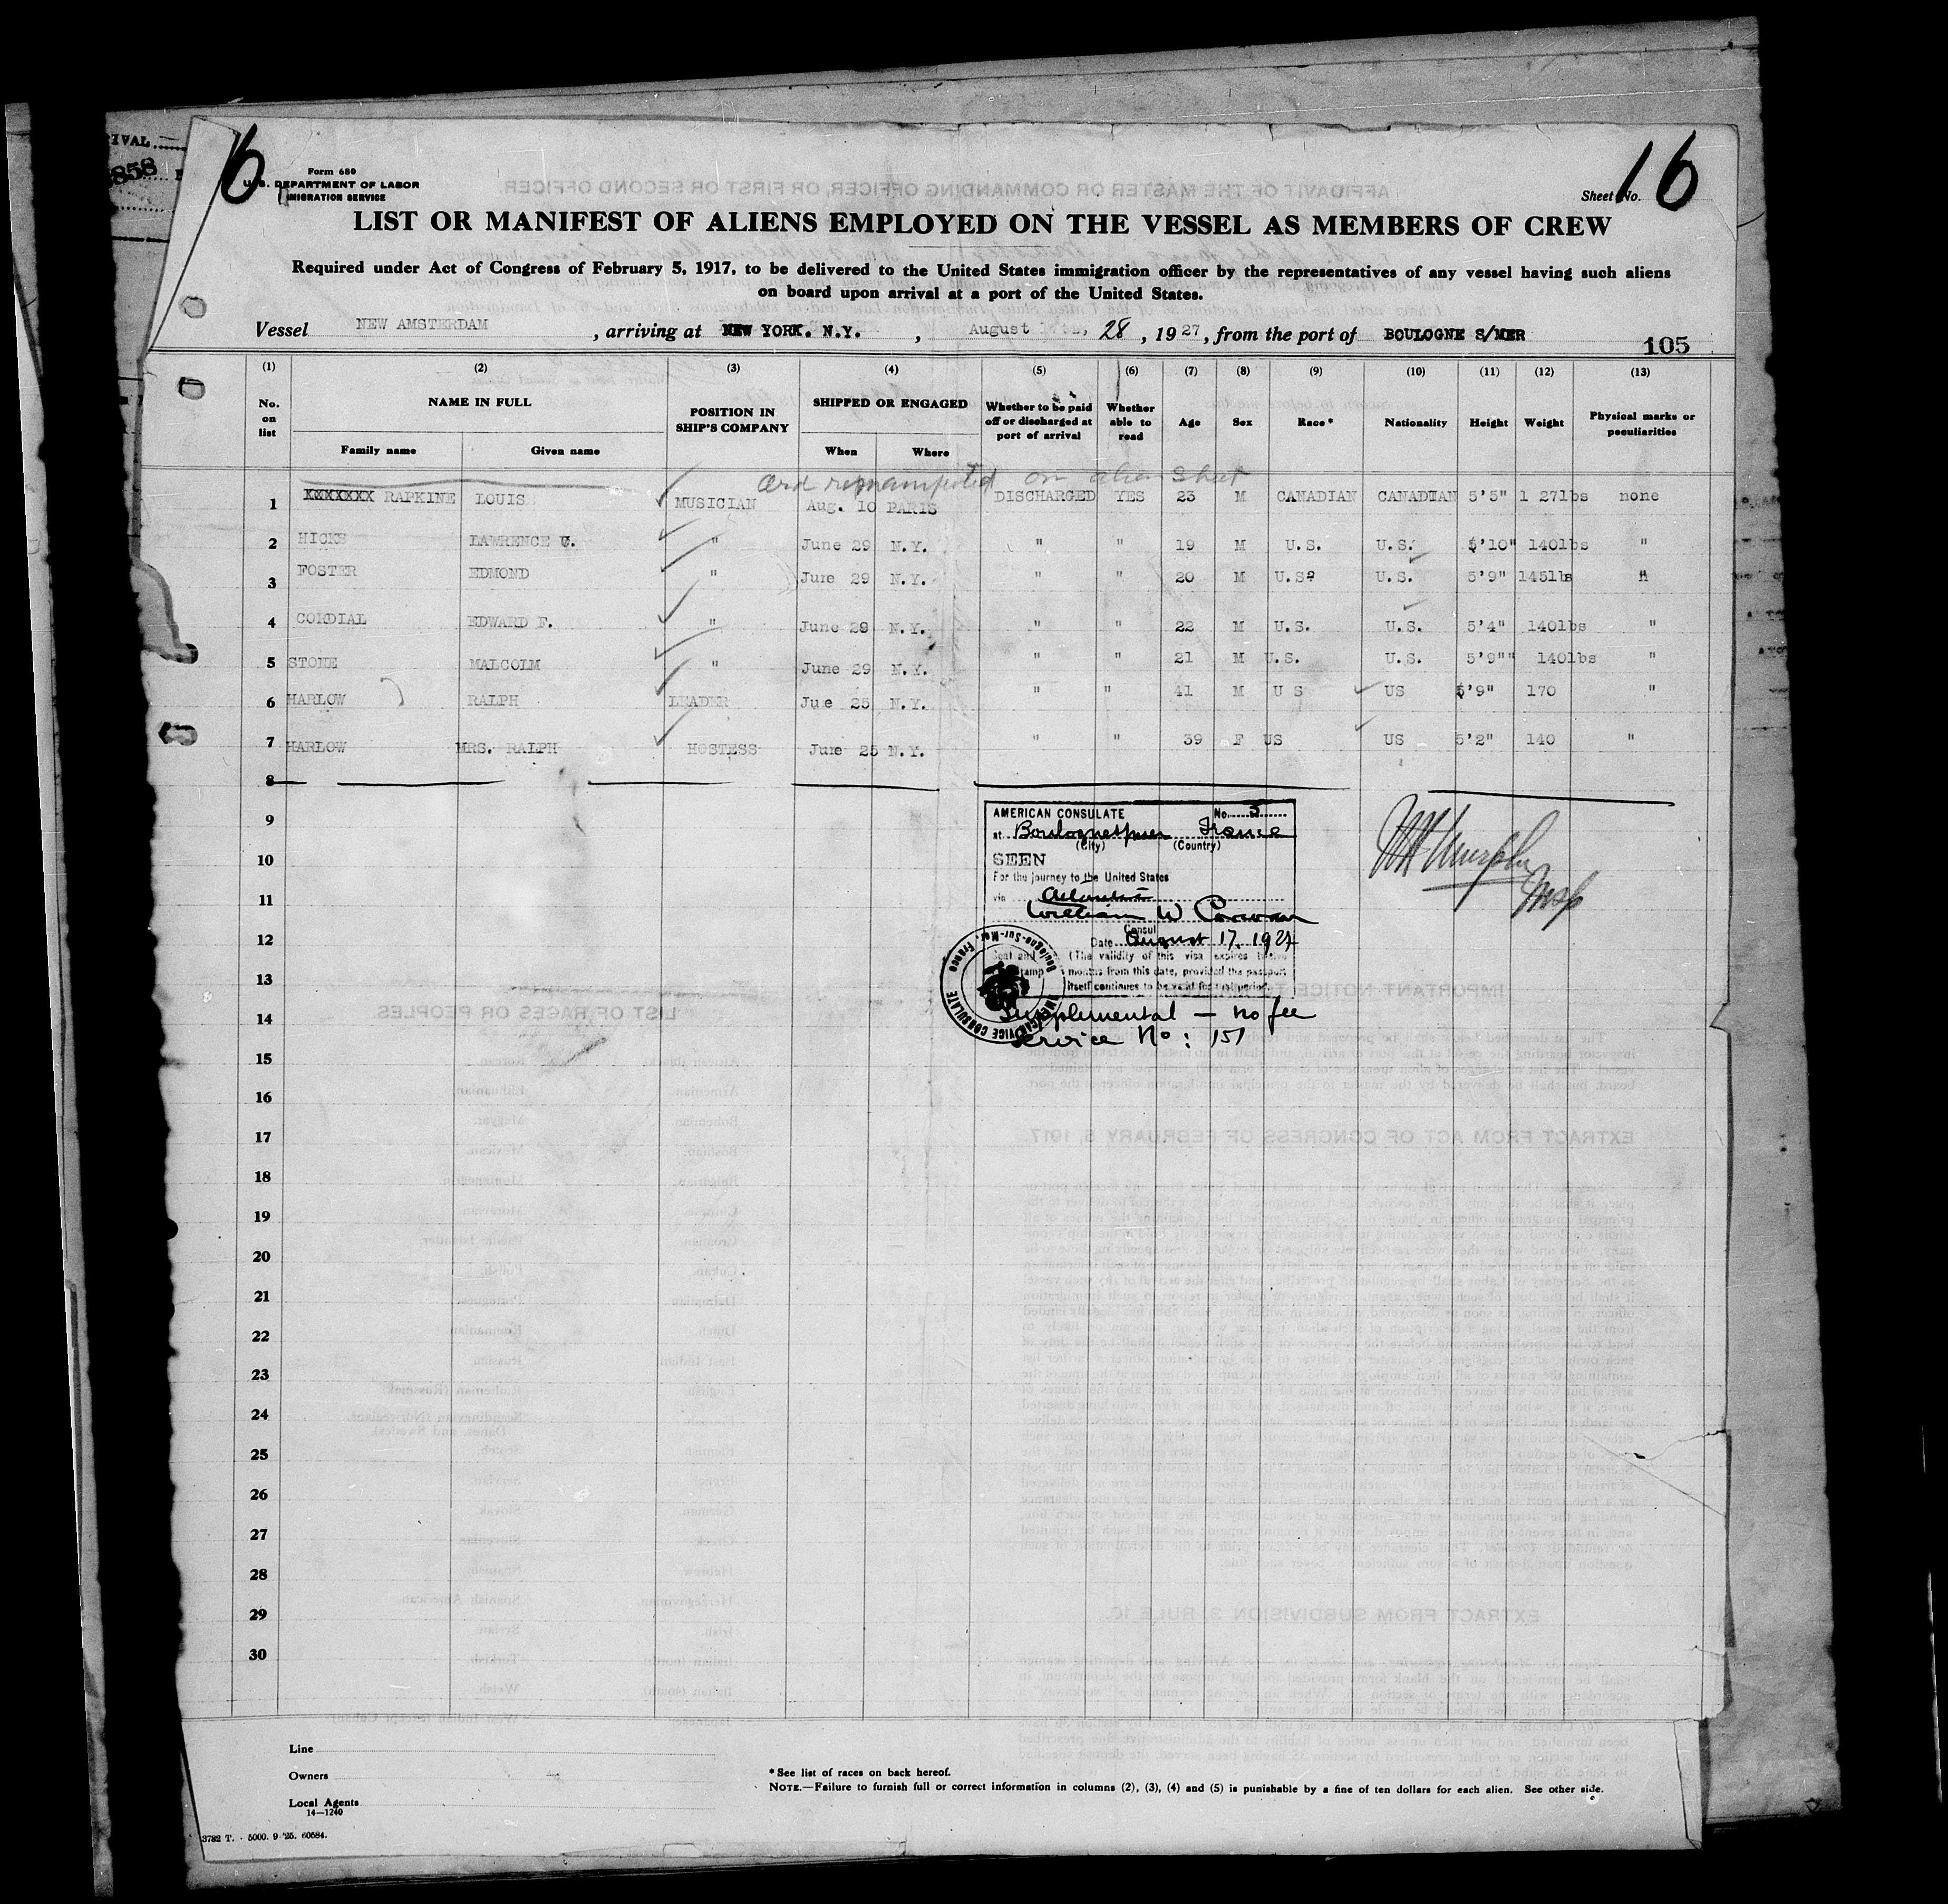 IVAL
858
6
16
Form 680
U.S. DEPARTMENT OF LABOR
IMMIGRATION SERVICE
Sheet No.
LIST OR MANIFEST OF ALIENS EMPLOYED ON THE VESSEL AS MEMBERS OF CREW
Required under Act of Congress of February 5, 1917, to be delivered to the United States immigration officer by the representatives of any vessel having such aliens
on board upon arrival at a port of the United States.
Vessel NEW AMSTERDAM , arriving at NEW YORK. N.Y. , August 28 , 1927 , from the port of BOULOGNE S/MER
105
(1) (2) (3) (4) (5) (6) (7) (8) (9) (10) (11) (12) (13)
No. on list NAME IN FULL Family name Given name POSITION IN SHIP'S COMPANY SHIPPED OR ENGAGED When Where Whether to be paid off or discharged at port of arrival Whether able to read Age Sex Race* Nationality Height Weight Physical marks or peculiarities
on alien Sheet
1 RAPKINE LOUIS MUSICIAN Aug. 10 PARIS DISCHARGED YES 23 M CANADIAN CANADIAN 5'5" 1 27lbs none
2 HICKS LAWRENCE " June 29 N.Y. " " 19 M U.S. U.S. 5'10" 140lbs "
3 FOSTER EDMOND " June 29 N.Y. " " 20 M U.S? U.S. 5'9" 145lbs "
4 CORDIAL EDWARD F. " June 29 N.Y. " " 22 M U.S. U.S. 5'4" 140lbs "
5 STONE MALCOLM " June 29 N.Y. " " 21 M U.S. U.S. 5'9"" 140lbs "
6 HARLOW RALPH LEADER Jue 25 N.Y. " " 41 M U S US 5'9" 170 "
7 HARLOW MRS. RALPH HOSTESS June 25 N.Y. " " 39 F US US 5'2" 140 "
8
9
10
11
12
13
14
15
16
17
18
19
20
21
22
23
24
25
26
27
28
29
30
AMERICAN CONSULATE No. 5
at Boulogne France
(City) (Country)
SEEN
For the journey to the United States
via
William W Corcoran
Consul
Date August 17, 1927
Seal and Stamp (The validity of this visa expires twelve
months from this date, provided the passport
itself continues to be valid for that period.)
AMERICAN VICE CONSULATE Boulogne-Sur-Mer, France
Supplemental — no fee
Service No: 151
Murphy
Insp
Line
Owners
Local Agents
14—1240
* See list of races on back hereof.
NOTE.—Failure to furnish full or correct information in columns (2), (3), (4) and (5) is punishable by a fine of ten dollars for each alien. See other side.
3782 T. - 5000. 9-'25. 60584.